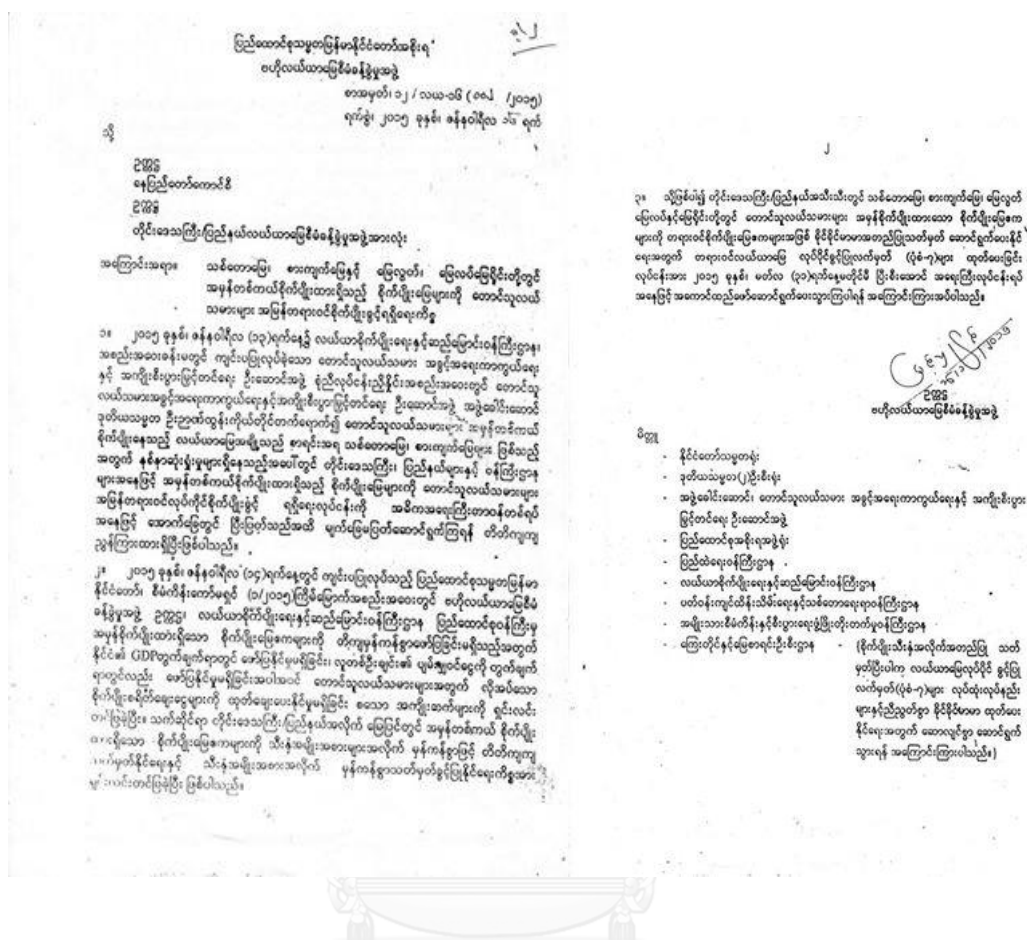 ပြည်ထောင်စုသမ္မတမြန်မာနိုင်ငံတော်အစိုးရ
ဗဟိုလယ်ယာမြေစီမံခန့်ခွဲမှုအဖွဲ့
စာအမှတ်၊ ၁၂ / လယ-၁၆ ( /၂၀၁၅)
ရက်စွဲ၊ ၂၀၁၅ ခုနှစ်၊ ဇန်နဝါရီလ ရက်
သို့
ဥက္ကဋ္ဌ
နေပြည်တော်ကောင်စီ
ဥက္ကဋ္ဌ
တိုင်းဒေသကြီး/ပြည်နယ်လယ်ယာမြေစီမံခန့်ခွဲမှုအဖွဲ့အားလုံး
အကြောင်းအရာ။ သစ်တောမြေ၊ စားကျက်မြေနှင့် မြေလွတ်၊ မြေလပ်မြေရိုင်းတို့တွင်
အမှန်တစ်ကယ်စိုက်ပျိုးထားရှိသည့် စိုက်ပျိုးမြေများကို တောင်သူလယ်
သမားများ အမြန်တရားဝင်စိုက်ပျိုးခွင့်ရရှိရေးကိစ္စ
၁။ ၂၀၁၅ ခုနှစ်၊ ဇန်နဝါရီလ (၁၃)ရက်နေ့၌ လယ်ယာစိုက်ပျိုးရေးနှင့်ဆည်မြောင်းဝန်ကြီးဌာန၊
အစည်းအဝေးခန်းမတွင် ကျင်းပပြုလုပ်ခဲ့သော တောင်သူလယ်သမား အခွင့်အရေးကာကွယ်ရေး
နှင့် အကျိုးစီးပွားမြှင့်တင်ရေး ဦးဆောင်အဖွဲ့ စုံညီလုပ်ငန်းညှိနှိုင်းအစည်းအဝေးတွင် တောင်သူ
လယ်သမားအခွင့်အရေးကာကွယ်ရေးနှင့်အကျိုးစီးပွားမြှင့်တင်ရေး ဦးဆောင်အဖွဲ့ အဖွဲ့ခေါင်းဆောင်
ဒုတိယသမ္မတ ဦးဉာဏ်ထွန်းကိုယ်တိုင်တက်ရောက်၍ တောင်သူလယ်သမားများ အမှန်တစ်ကယ်
စိုက်ပျိုးနေသည့် လယ်ယာမြေအချို့သည် စာရင်းအရ သစ်တောမြေ၊ စားကျက်မြေများ ဖြစ်သည့်
အတွက် နစ်နာဆုံးရှုံးမှုများရှိနေသည့်အပေါ်တွင် တိုင်းဒေသကြီး၊ ပြည်နယ်များနှင့် ဝန်ကြီးဌာန
များအနေဖြင့် အမှန်တစ်ကယ်စိုက်ပျိုးထားရှိသည့် စိုက်ပျိုးမြေများကို တောင်သူလယ်သမားများ
အမြန်တရားဝင်လုပ်ကိုင်စိုက်ပျိုးခွင့် ရရှိရေးလုပ်ငန်းကို အဓိကအရေးကြီးတာဝန်တစ်ရပ်
အနေဖြင့် အောက်ခြေတွင် ပြီးပြတ်သည်အထိ မျက်ခြေမပြတ်ဆောင်ရွက်ကြရန် တိတိကျကျ
ညွှန်ကြားထားရှိပြီးဖြစ်ပါသည်။
၂။ ၂၀၁၅ ခုနှစ်၊ ဇန်နဝါရီလ (၁၄)ရက်နေ့တွင် ကျင်းပပြုလုပ်သည့် ပြည်ထောင်စုသမ္မတမြန်မာ
နိုင်ငံတော်၊ စီမံကိန်းကော်မရှင် (၁/၂၀၁၅)ကြိမ်မြောက်အစည်းအဝေးတွင် ဗဟိုလယ်ယာမြေစီမံ
ခန့်ခွဲမှုအဖွဲ့ ဥက္ကဋ္ဌ၊ လယ်ယာစိုက်ပျိုးရေးနှင့်ဆည်မြောင်းဝန်ကြီးဌာန ပြည်ထောင်စုဝန်ကြီးမှ
အမှန်စိုက်ပျိုးထားရှိသော စိုက်ပျိုးမြေဧကများကို တိကျမှန်ကန်စွာဖော်ပြခြင်းမရှိသည့်အတွက်
နိုင်ငံ၏ GDPတွက်ချက်ရာတွင် ဖော်ပြနိုင်မှုမရှိခြင်း၊ လူတစ်ဦးချင်း၏ ပျမ်းမျှဝင်ငွေကို တွက်ချက်
ရာတွင်လည်း ဖော်ပြနိုင်မှုမရှိခြင်းအပါအဝင် တောင်သူလယ်သမားများအတွက် လိုအပ်သော
စိုက်ပျိုးစရိတ်ချေးငွေများကို ထုတ်ချေးပေးနိုင်မှုမရှိခြင်း စသော အကျိုးဆက်များကို ရှင်းလင်း
တင်ပြခဲ့ပြီး၊ သက်ဆိုင်ရာ တိုင်းဒေသကြီး/ပြည်နယ်အလိုက် မြေပြင်တွင် အမှန်တစ်ကယ် စိုက်ပျိုး
ထားရှိသော စိုက်ပျိုးမြေဧကများကို သီးနှံအမျိုးအစားများအလိုက် မှန်ကန်စွာဖြင့် တိတိကျကျ
သတ်မှတ်နိုင်ရေးနှင့် သီးနှံအမျိုးအစားအလိုက် မှန်ကန်စွာသတ်မှတ်ခွင့်ပြုနိုင်ရေးကိစ္စအား
ရှင်းလင်းတင်ပြခဲ့ပြီး ဖြစ်ပါသည်။
၂
၃။ သို့ဖြစ်ပါ၍ တိုင်းဒေသကြီး/ပြည်နယ်အသီးသီးတွင် သစ်တောမြေ၊ စားကျက်မြေ၊ မြေလွတ်
မြေလပ်နှင့်မြေရိုင်းတို့တွင် တောင်သူလယ်သမားများ အမှန်စိုက်ပျိုးထားသော စိုက်ပျိုးမြေဧက
များကို တရားဝင်စိုက်ပျိုးမြေဧကများအဖြစ် ခိုင်ခိုင်မာမာအတည်ပြုသတ်မှတ် ဆောင်ရွက်ပေးနိုင်
ရေးအတွက် တရားဝင်လယ်ယာမြေ လုပ်ပိုင်ခွင့်ပြုလက်မှတ် (ပုံစံ-၇)များ ထုတ်ပေးခြင်း
လုပ်ငန်းအား ၂၀၁၅ ခုနှစ်၊ မတ်လ (၃၁)ရက်နေ့မတိုင်မီ ပြီးစီးအောင် အရေးကြီးလုပ်ငန်းရပ်
အနေဖြင့် အကောင်ထည်ဖော်ဆောင်ရွက်ပေးသွားကြပါရန် အကြောင်းကြားအပ်ပါသည်။
ဥက္ကဋ္ဌ
ဗဟိုလယ်ယာမြေစီမံခန့်ခွဲမှုအဖွဲ့
မိတ္တူ
- နိုင်ငံတော်သမ္မတရုံး
- ဒုတိယသမ္မတ(၂)ဦးစီးရုံး
- အဖွဲ့ခေါင်းဆောင်၊ တောင်သူလယ်သမား အခွင့်အရေးကာကွယ်ရေးနှင့် အကျိုးစီးပွား
မြှင့်တင်ရေး ဦးဆောင်အဖွဲ့
- ပြည်ထောင်စုအစိုးရအဖွဲ့ရုံး
- ပြည်ထဲရေးဝန်ကြီးဌာန
- လယ်ယာစိုက်ပျိုးရေးနှင့်ဆည်မြောင်းဝန်ကြီးဌာန
- ပတ်ဝန်းကျင်ထိန်းသိမ်းရေးနှင့်သစ်တောရေးရာဝန်ကြီးဌာန
- အမျိုးသားစီမံကိန်းနှင့်စီးပွားရေးဖွံ့ဖြိုးတိုးတက်မှုဝန်ကြီးဌာန
- ကြေးတိုင်နှင့်မြေစာရင်းဦးစီးဌာန - (စိုက်ပျိုးသီးနှံအလိုက်အတည်ပြု သတ်
မှတ်ပြီးပါက လယ်ယာမြေလုပ်ပိုင် ခွင့်ပြု
လက်မှတ်(ပုံစံ-၇)များ လုပ်ထုံးလုပ်နည်း
များနှင့်ညီညွတ်စွာ ခိုင်ခိုင်မာမာ ထုတ်ပေး
နိုင်ရေးအတွက် ဆောလျင်စွာ ဆောင်ရွက်
သွားရန် အကြောင်းကြားပါသည်။)